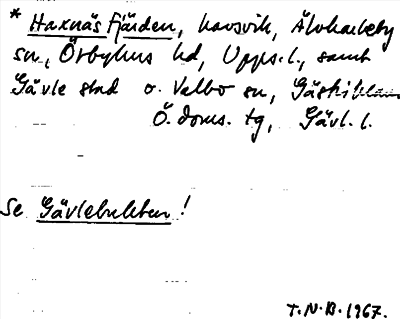 * Haxnäs fjärden, havsvik, Älvkarleby
sn, Örbyhus hd, Upps. l., samt
Gävle stad o. Valbo sn, Gästriklands
Ö. doms. tg, Gävl. l.
Se Gävlebukten!
T.N.B. 1967.